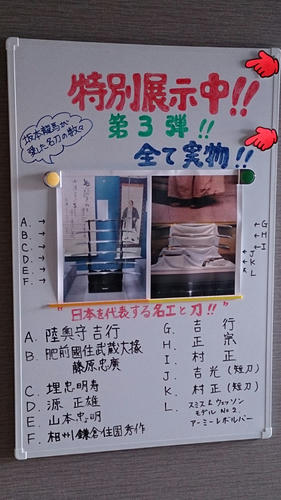 特別展示中!!
第3弾!!
坂本龍馬が
愛した名刀の数々
全て実物!!
A. →
B. →
C. →
D. →
E. →
F. →
← G
← H
← I
← J
← K
← L
"日本を代表する名工と刀!!"
A. 陸奥守吉行
B. 肥前國住武蔵大掾
藤原忠廣
C. 埋忠明寿
D. 源 正雄
E. 山本忠明
F. 相州鎌倉住国秀作
G. 吉 行
H. 正 宗
I. 村 正
J. 吉光(短刀)
K. 村正(短刀)
L. スミス&ウェッソン
モデルNo.2
アーミーレボルバー